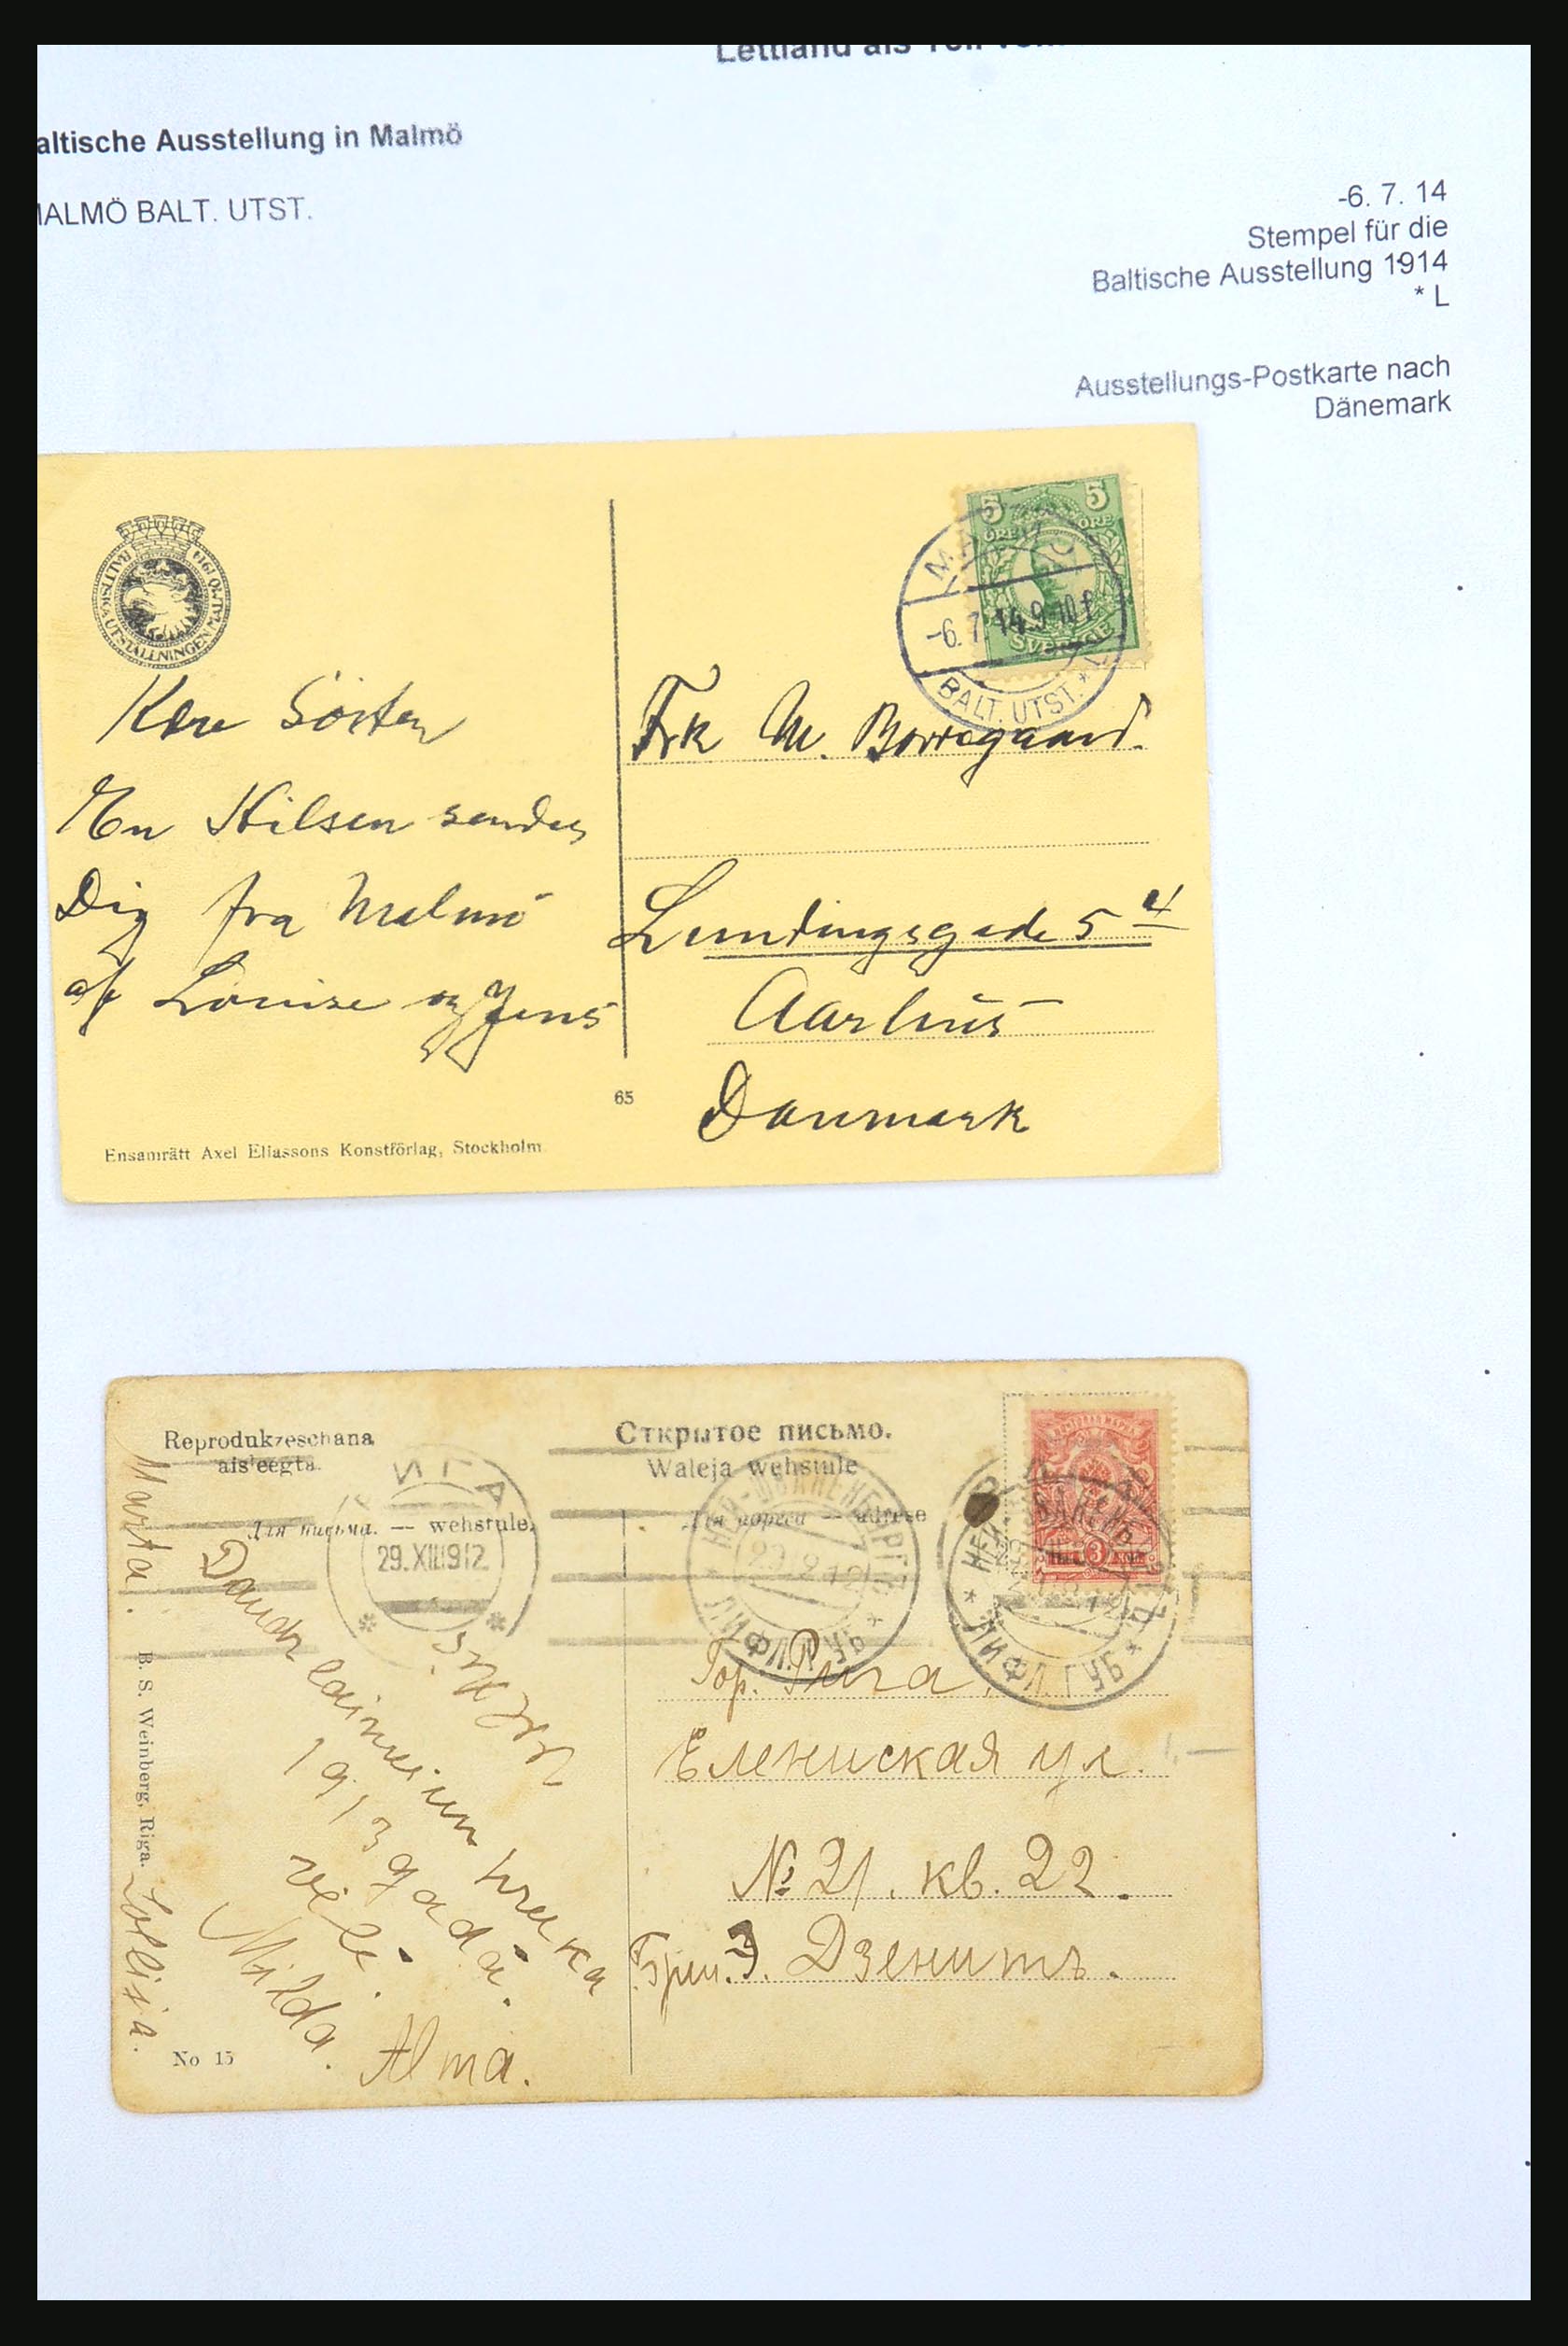 Lettland als Teil von
altische Ausstellung in Malmö
MALMÖ BALT. UTST.
-6. 7. 14
Stempel für die
Baltische Ausstellung 1914
* L
Ausstellungs-Postkarte nach
Dänemark
BALTISKA UTSTÄLLNINGEN MALMÖ 1914
5 5
ÖRE ÖRE
SVERIGE
-6. 7. 14. 9-10 f
BALT. UTST. * L
Kære Söster
En Hilsen sendes
Dig fra Malmö
af Louise og Jens
Frk M. Borregaard.
Lundingsgade 5
Aarhus
Danmark
65
Ensamrätt Axel Eliassons Konstförlag, Stockholm
Reprodukzeschana
aisleegta.
Открытое письмо.
Waleja wehstule
Для письма. — wehstule.
Для адреса — adrese
РИГА
29.XII.1912
НЕЙ-ШВАНЕНБУРГЪ
29 12 12
* ЛИФЛ. ГУБ *
* ЛИФЛ. ГУБ *
3
Гор. Рига.
Еленинская ул.
№ 21. кв. 22.
Э. Дзенитъ.
Daudz laimes un
1913 gadā.
vēl.
Milda.
Alma.
Marta.
B. S. Weinberg, Riga.
No 15